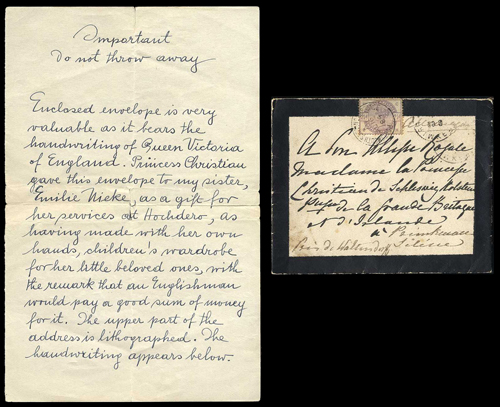 Important
Do not throw away
Enclosed envelope is very
valuable as it bears the
handwriting of Queen Victoria
of England. Princess Christian
gave this envelope to my sister,
Emilie Nieke, as a gift for
her services at Hochdero, as
having made with her own
hands, children's wardrobe
for her little beloved ones, with
the remark that an Englishman
would pay a good sum of money
for it. The upper part of the
address is lithographed. The
handwriting appears below.
A Son Altesse Royale
Madame la Princesse
Christian de Schleswig Holstein
de la Grande Bretagne
et d'Irlande
à Primkenau
Silésie